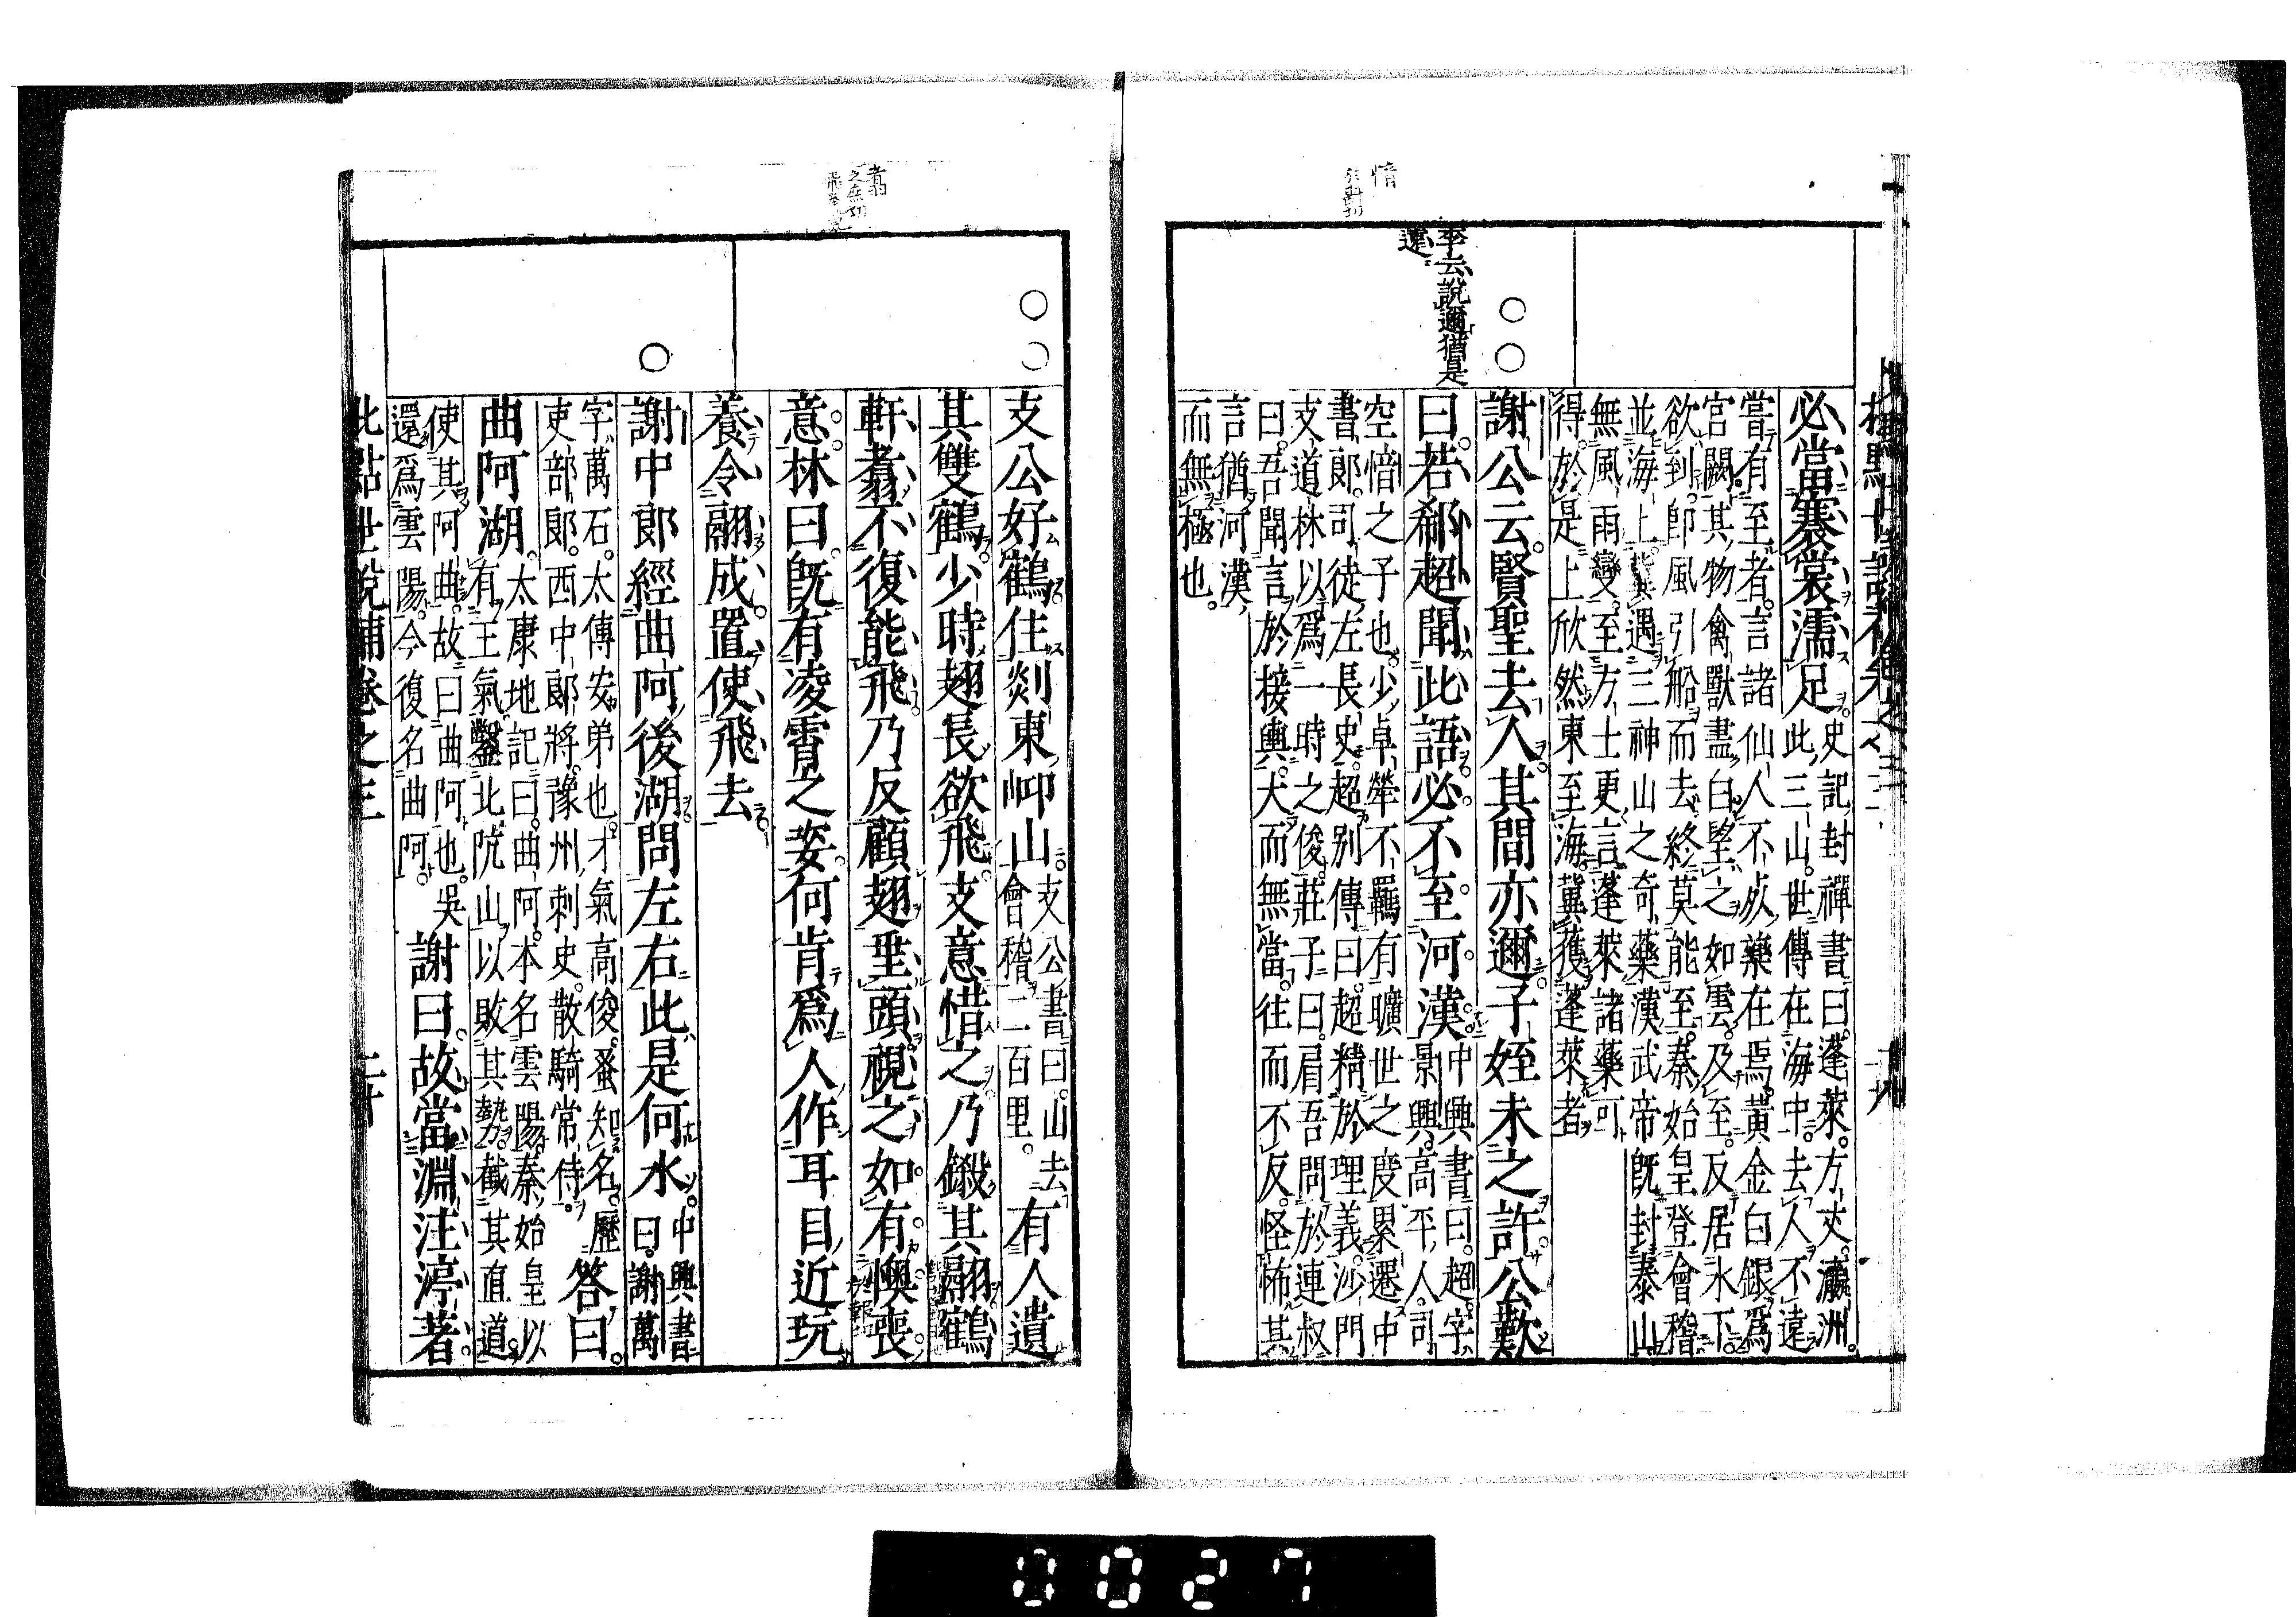 必當褰裳濡足
史記封禪書曰蓬萊方丈瀛洲
此三山世傳在海中去人不遠
嘗有至者言諸仙人不死藥在焉黃金白銀爲
宮闕其物禽獸盡白望之如雲及至反居水下
欲到卽風引船而去終莫能至秦始皇登會稽
並海上冀遇三神山之奇藥漢武帝既封泰山
無風雨變至方士更言蓬萊諸藥可
得於是上欣然東至海冀獲蓬萊者
謝公云賢聖去人其間亦邇子姪未之許公歎
曰若郗超聞此語必不至河漢
中興書曰超字
景興高平人司
空愔之子也少卓犖不羈有曠世之度累遷中
書郎司徒左長史超別傳曰超精於理義沙門
支道林以爲一時之俊莊子曰肩吾問於連叔
曰吾聞言於接輿大而無當往而不反怪怖其
言猶河漢
而無極也
李云說邇猶是
遠
愔
支公好鶴住剡東岬山
支公書曰山去
會稽二百里
有人遺
其雙鶴少時翅長欲飛支意惜之乃鎩其翮鶴
軒翥不復能飛乃反顧翅垂頭視之如有懊喪
意林曰旣有凌霄之姿何肯爲人作耳目近玩
養令翮成置使飛去
謝中郎經曲阿後湖問左右此是何水
中興書
曰謝萬
字萬石太傅安弟也才氣高俊蚤知名歷
吏部郎西中郎將豫州刺史散騎常侍
答曰
曲阿湖
太康地記曰曲阿本名雲陽秦始皇以
有王氣鑿北阬山以敗其勢截其直道
使其阿曲故曰曲阿也吳
還爲雲陽今復名曲阿
謝曰故當淵注渟著
翥
批點世說補卷之三
二十